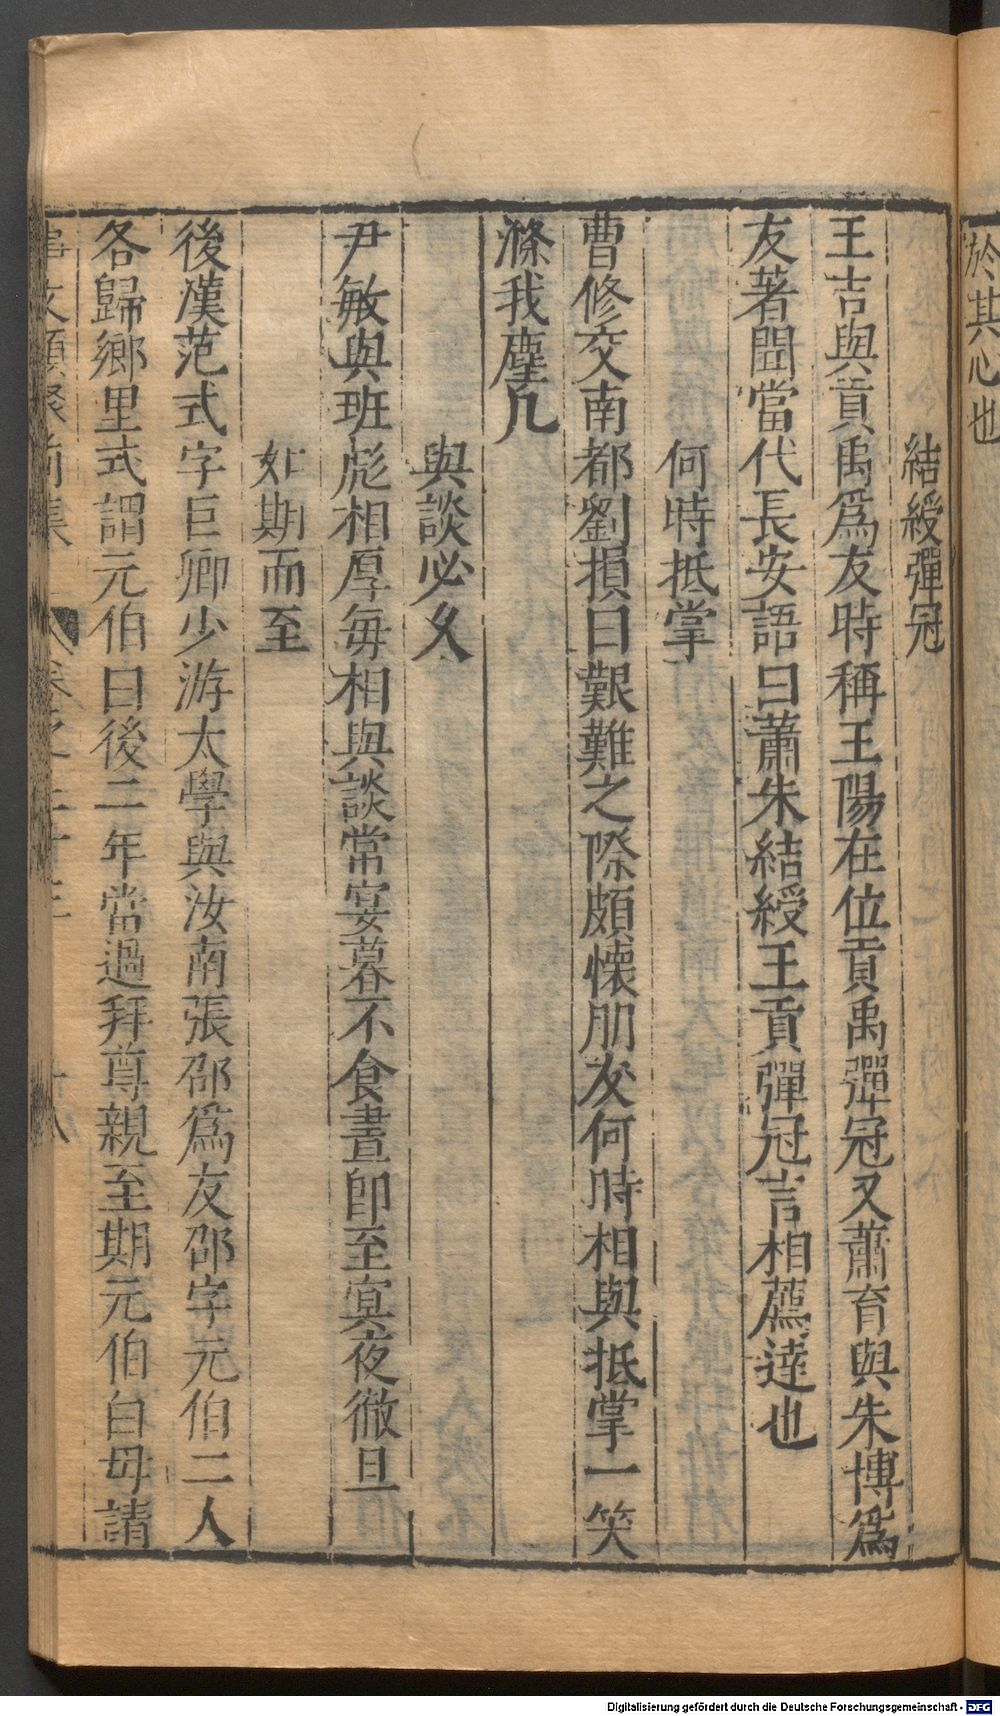 於其心也
結綬彈冠
王吉與貢禹爲友時稱王陽在位貢禹彈冠又蕭育與朱博爲
友著聞當代長安語曰蕭朱結綬王貢彈冠言相薦逹也
何時抵掌
曹修交南都劉損曰艱難之際頗懐朋友何時相與抵掌一笑
滌我塵几
與談必久
尹敏與班彪相厚毎相與談常宴暮不食晝即至寞夜徹旦
如期而至
後漢范式字巨卿少游太學與汝南張邵爲友邵字元伯二人
各歸鄉里式謂元伯曰後二年當過拜尊親至期元伯白母請
事文類聚前集 卷之二十三 十八
Digitalisierung gefördert durch die Deutsche Forschungsgemeinschaft - DFG